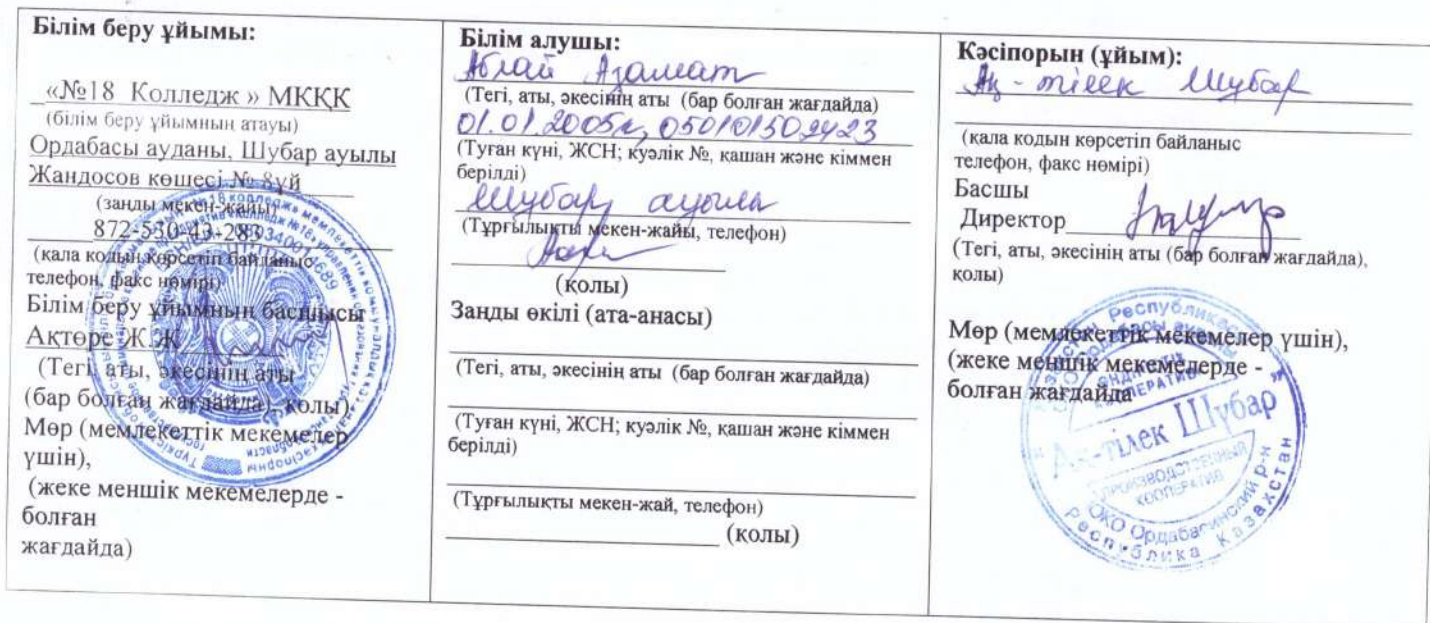 Білім беру ұйымы:
«№18 Колледж » МКҚК
(білім беру ұйымның атауы)
Ордабасы ауданы, Шубар ауылы
Жандосов көшесі № 8үй
(заңды мекен-жайы)
872-530-43-283
(қала кодын көрсетіп байланыс
телефон, факс нөмірі)
Білім беру ұйымның басшысы
Ақтөре Ж.Ж
(Тегі, аты, әкесінің аты
(бар болған жағдайда), қолы)
Мөр (мемлекеттік мекемелер
үшін),
(жеке меншік мекемелерде -
болған
жағдайда)
Білім алушы:
Аблай Азамат
(Тегі, аты, әкесінің аты (бар болған жағдайда)
01.01.2005ж, 050101502423
(Туған күні, ЖСН; куәлік №, қашан және кіммен
берілді)
Шубар ауылы
(Тұрғылықты мекен-жайы, телефон)
(қолы)
Заңды өкілі (ата-анасы)
(Тегі, аты, әкесінің аты (бар болған жағдайда)
(Туған күні, ЖСН; куәлік №, қашан және кіммен
берілді)
(Тұрғылықты мекен-жай, телефон)
(қолы)
Кәсіпорын (ұйым):
Ақ-тілек Шубар
(қала кодын көрсетіп байланыс
телефон, факс нөмірі)
Басшы
Директор
(Тегі, аты, әкесінің аты (бар болған жағдайда),
қолы)
Мөр (мемлекеттік мекемелер үшін),
(жеке меншік мекемелерде -
болған жағдайда
өндірістік
кооперативі
"Ақ-тілек Шұбар"
производственный
кооператив
ЮКО Ордабасинский р-н
Республика Казахстан